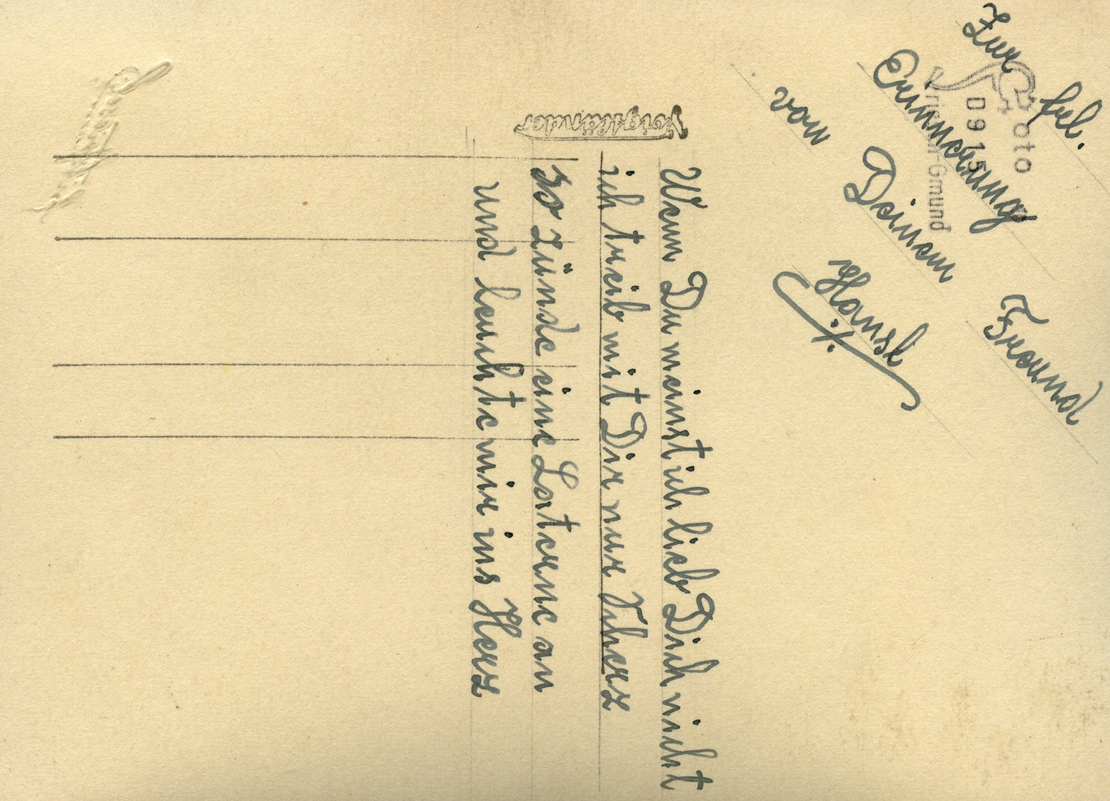 Zur frl.
Erinnerung
von Deinem Freund
Hansl
Foto
0915
Gmund
Voigtländer
Wenn Du meinst ich lieb Dich nicht
ich treib mit Dir nur Scherz
so zünde eine Laterne an
und leuchte mir ins Herz